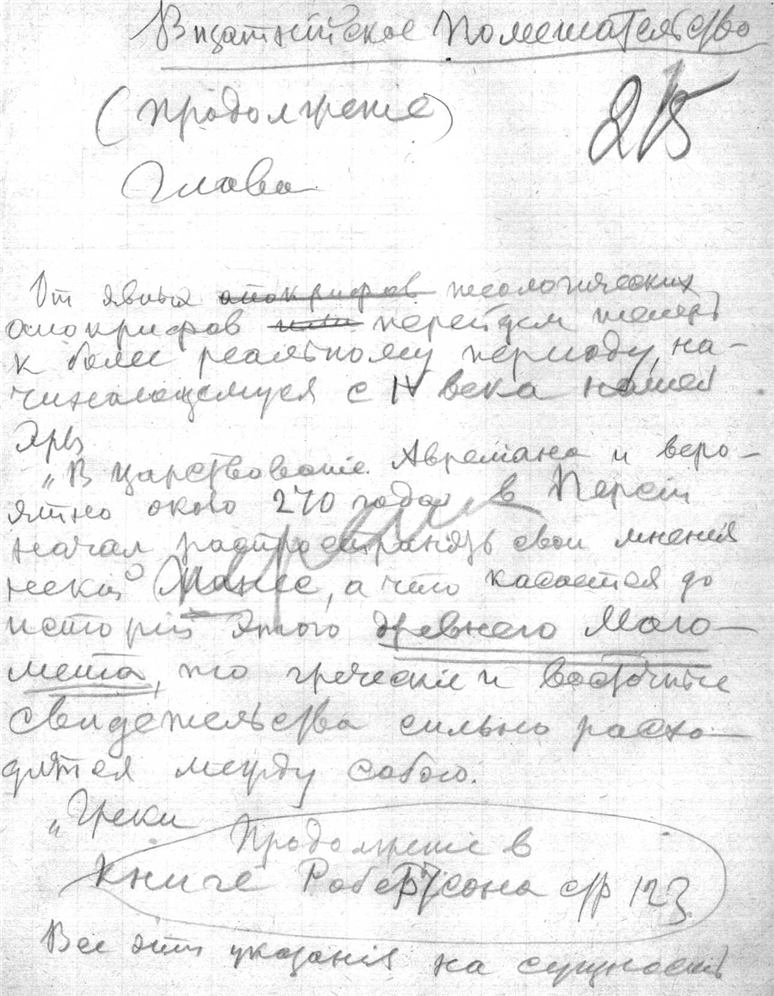 Византийское Помешательство
(продолжение)
215
Глава
От явных апокрифов теологических
апокрифов перейдем теперь
к более реальному периоду, на-
чинающемуся с IV века нашей
эры
„В царствование Аврелиана и веро-
ятно около 270 года в Персии
начал распространять свои мнения
некий Манес, а что касается до
истории этого древнего Маго-
мета, то греческие и восточные
свидетельства сильно расхо-
дятся между собою.
„Греки
Продолжение в
книге Робертсона стр 123
Все эти указания на сущность